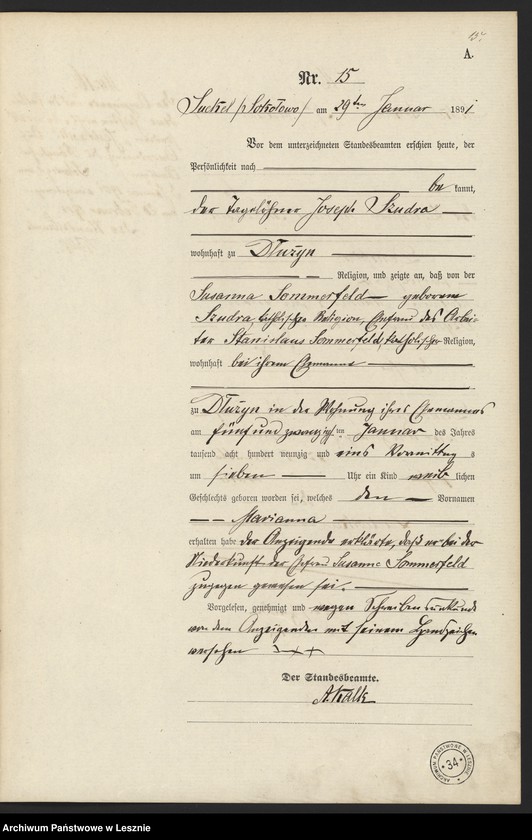 15.
A.
Nr. 15
Suckel /: Sokołowo / am 29ten Januar 1891
Vor dem unterzeichneten Standesbeamten erschien heute, der
Persönlichkeit nach
be kannt,
der Tagelöhner Joseph Szudra
wohnhaft zu Dłużyn
Religion, und zeigte an, daß von der
Susanna Sommerfeld geborene
Szudra katholischer Religion, Ehefrau des Arbei-
ter Stanislaus Sommerfeld, katholischer Religion,
wohnhaft bei ihrem Ehemanne
zu Dłużyn in der Wohnung ihres Ehemannes
am fünf und zwanzigsten Januar des Jahres
tausend acht hundert neunzig und eins Vormittag s
um sieben Uhr ein Kind weib lichen
Geschlechts geboren worden sei, welches den Vornamen
Marianna
erhalten habe der Anzeigende erklärte, daß er bei der
Niederkunft der Ehefrau Susanna Sommerfeld
zugegen gewesen sei.
Vorgelesen, genehmigt und wegen Schreibensunkunde
von dem Anzeigenden mit seinem Handzeichen
versehen +++
Der Standesbeamte.
ARCHIWUM PAŃSTWOWE W LESZNIE
34
Archiwum Państwowe w Lesznie